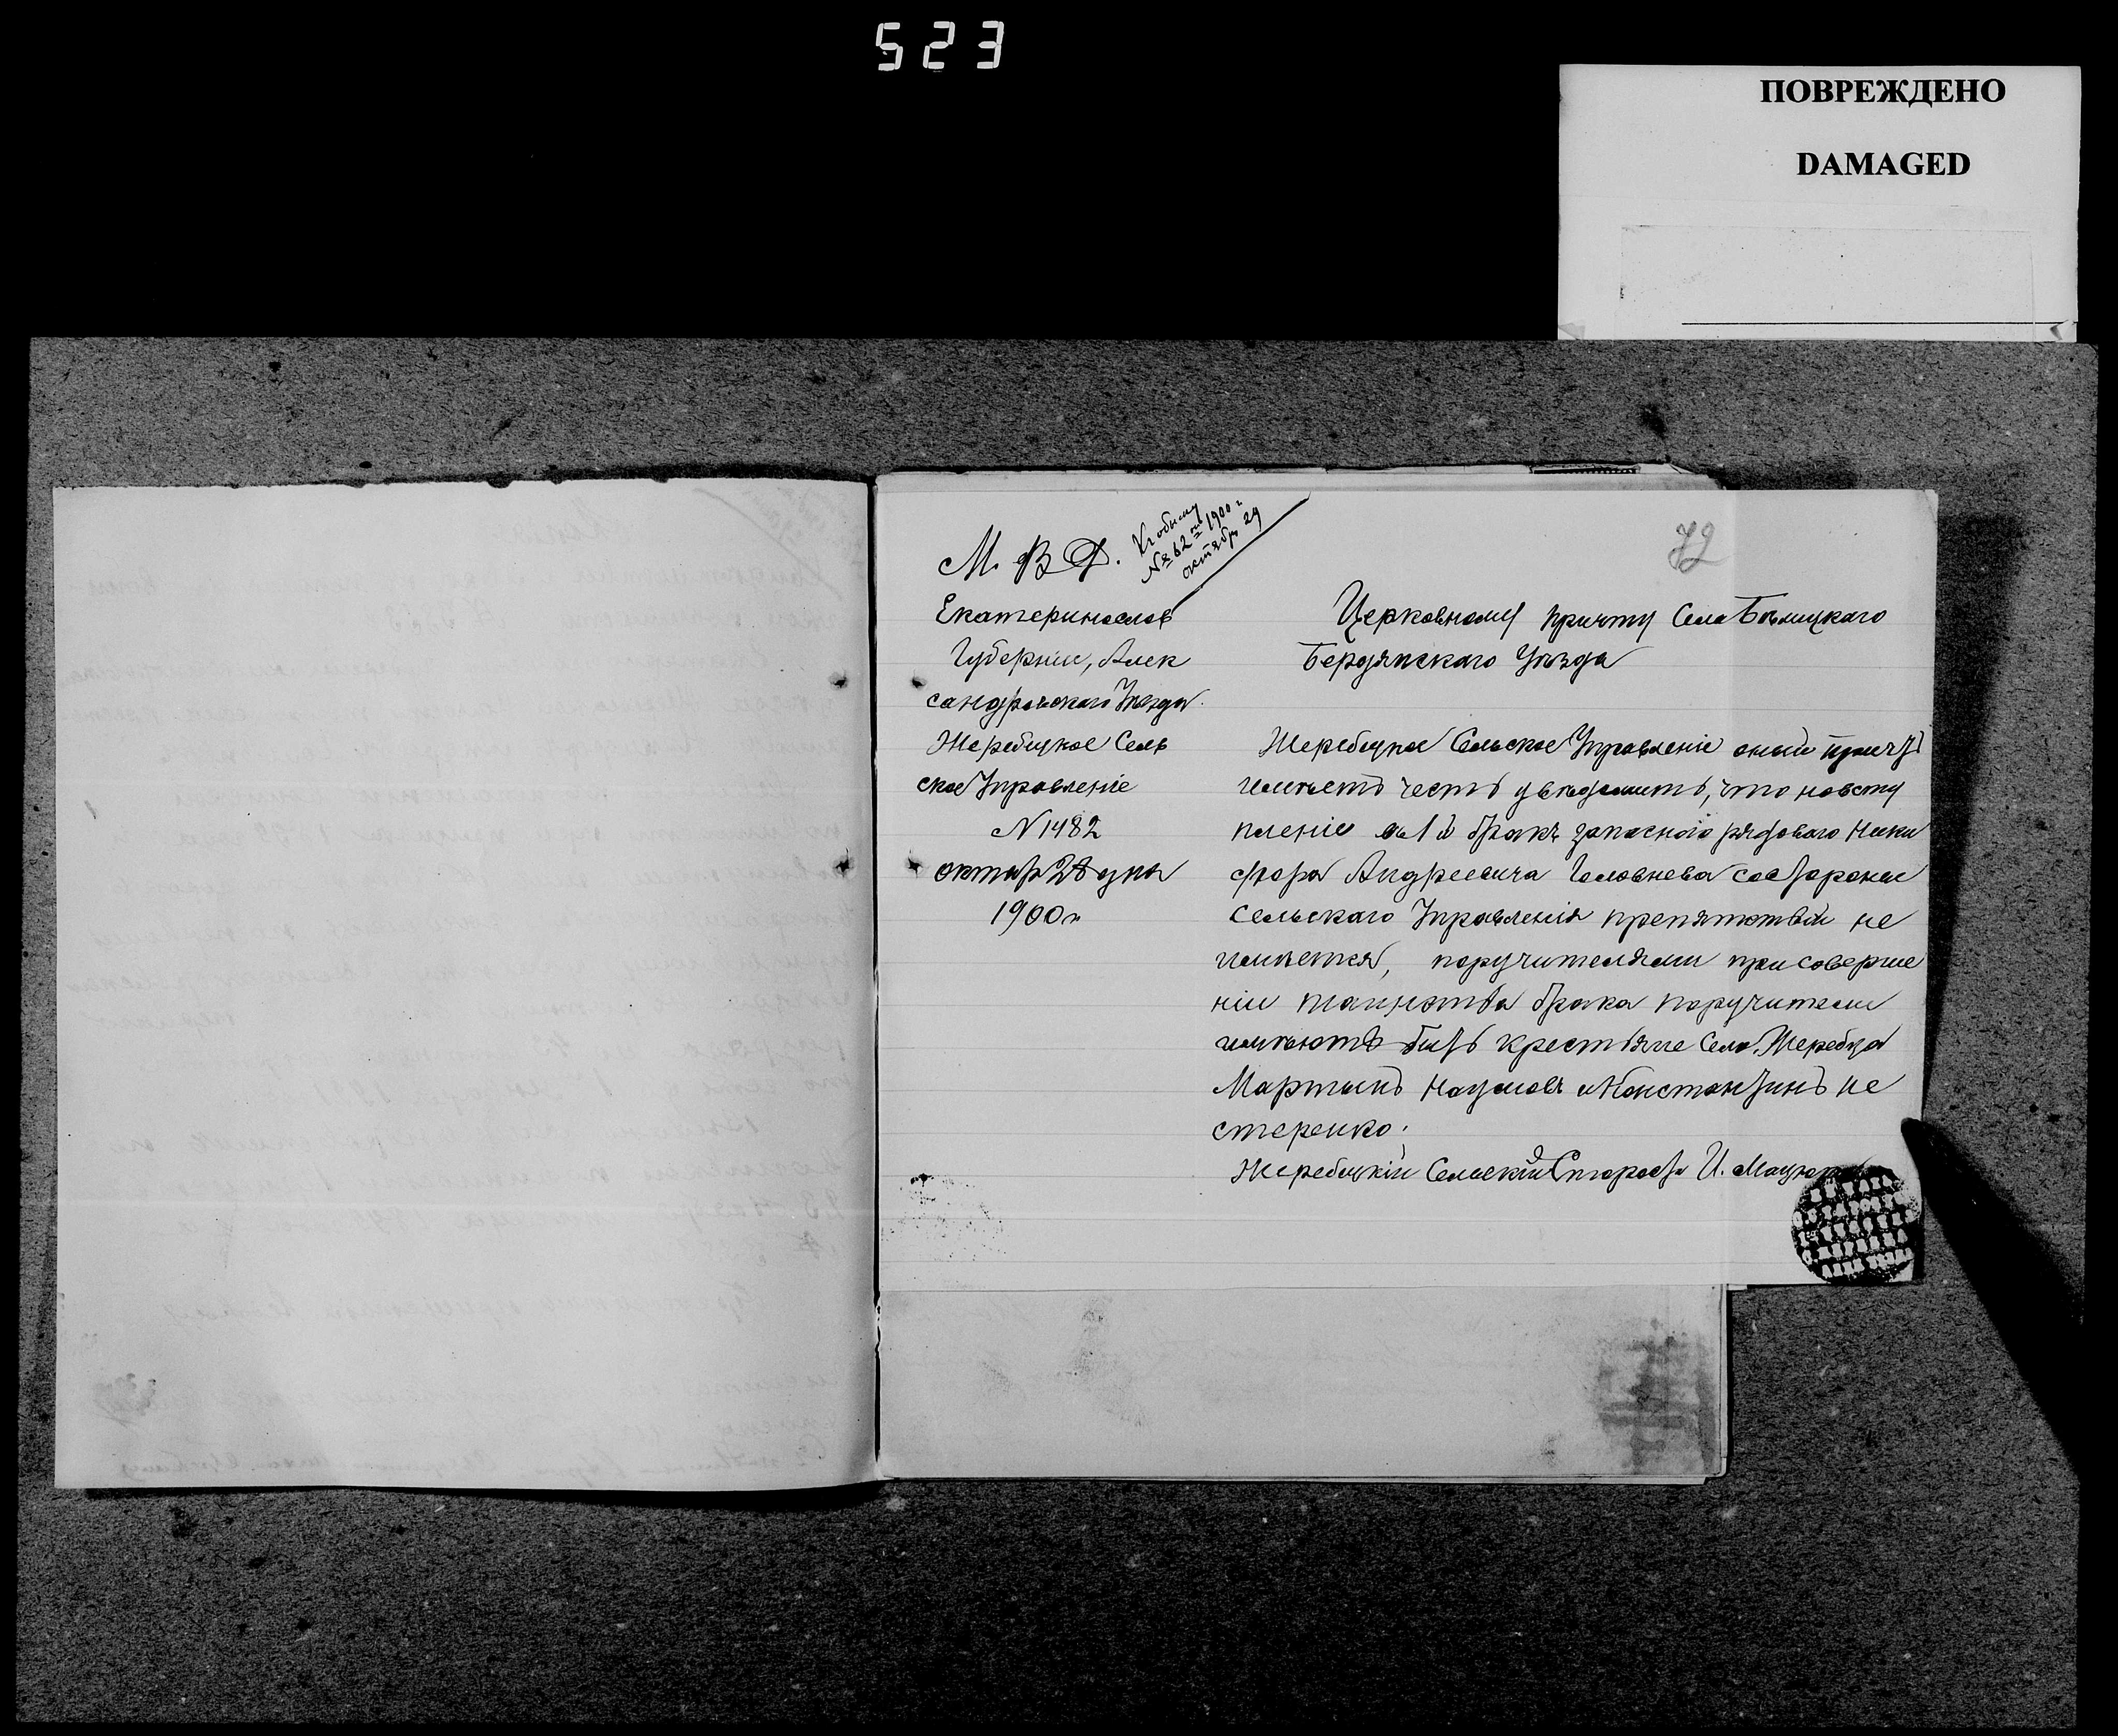 523
ПОВРЕЖДЕНО
DAMAGED
72
М. В. Д.
К обыску
№ 62 1900 г
октябр 29
Екатеринослав
Губерніи, Алек
сандровскаго Уѣзда.
Жеребецкое Сель
ское Управленіе
N 1482
октяб 28 дня
1900 г
Церковному причту Села
Бердянскаго Уѣзда
Жеребецкое Сельское Управленіе оный причтъ
имѣетъ честь увѣдомить, что новсту
пленіе въ 1й бракъ запаснаго рядоваго Ники
фора Андреевича Головнева состороны
Сельскаго Управленія препятствій не
имѣется, поручителями при соверше
ніи таинства брака поручители
имѣютъ быть крестьяне Села Жеребца
Мартынъ Наумовъ и Константинъ Не
стеренко.
Жеребецкій Сельскій Староста И.